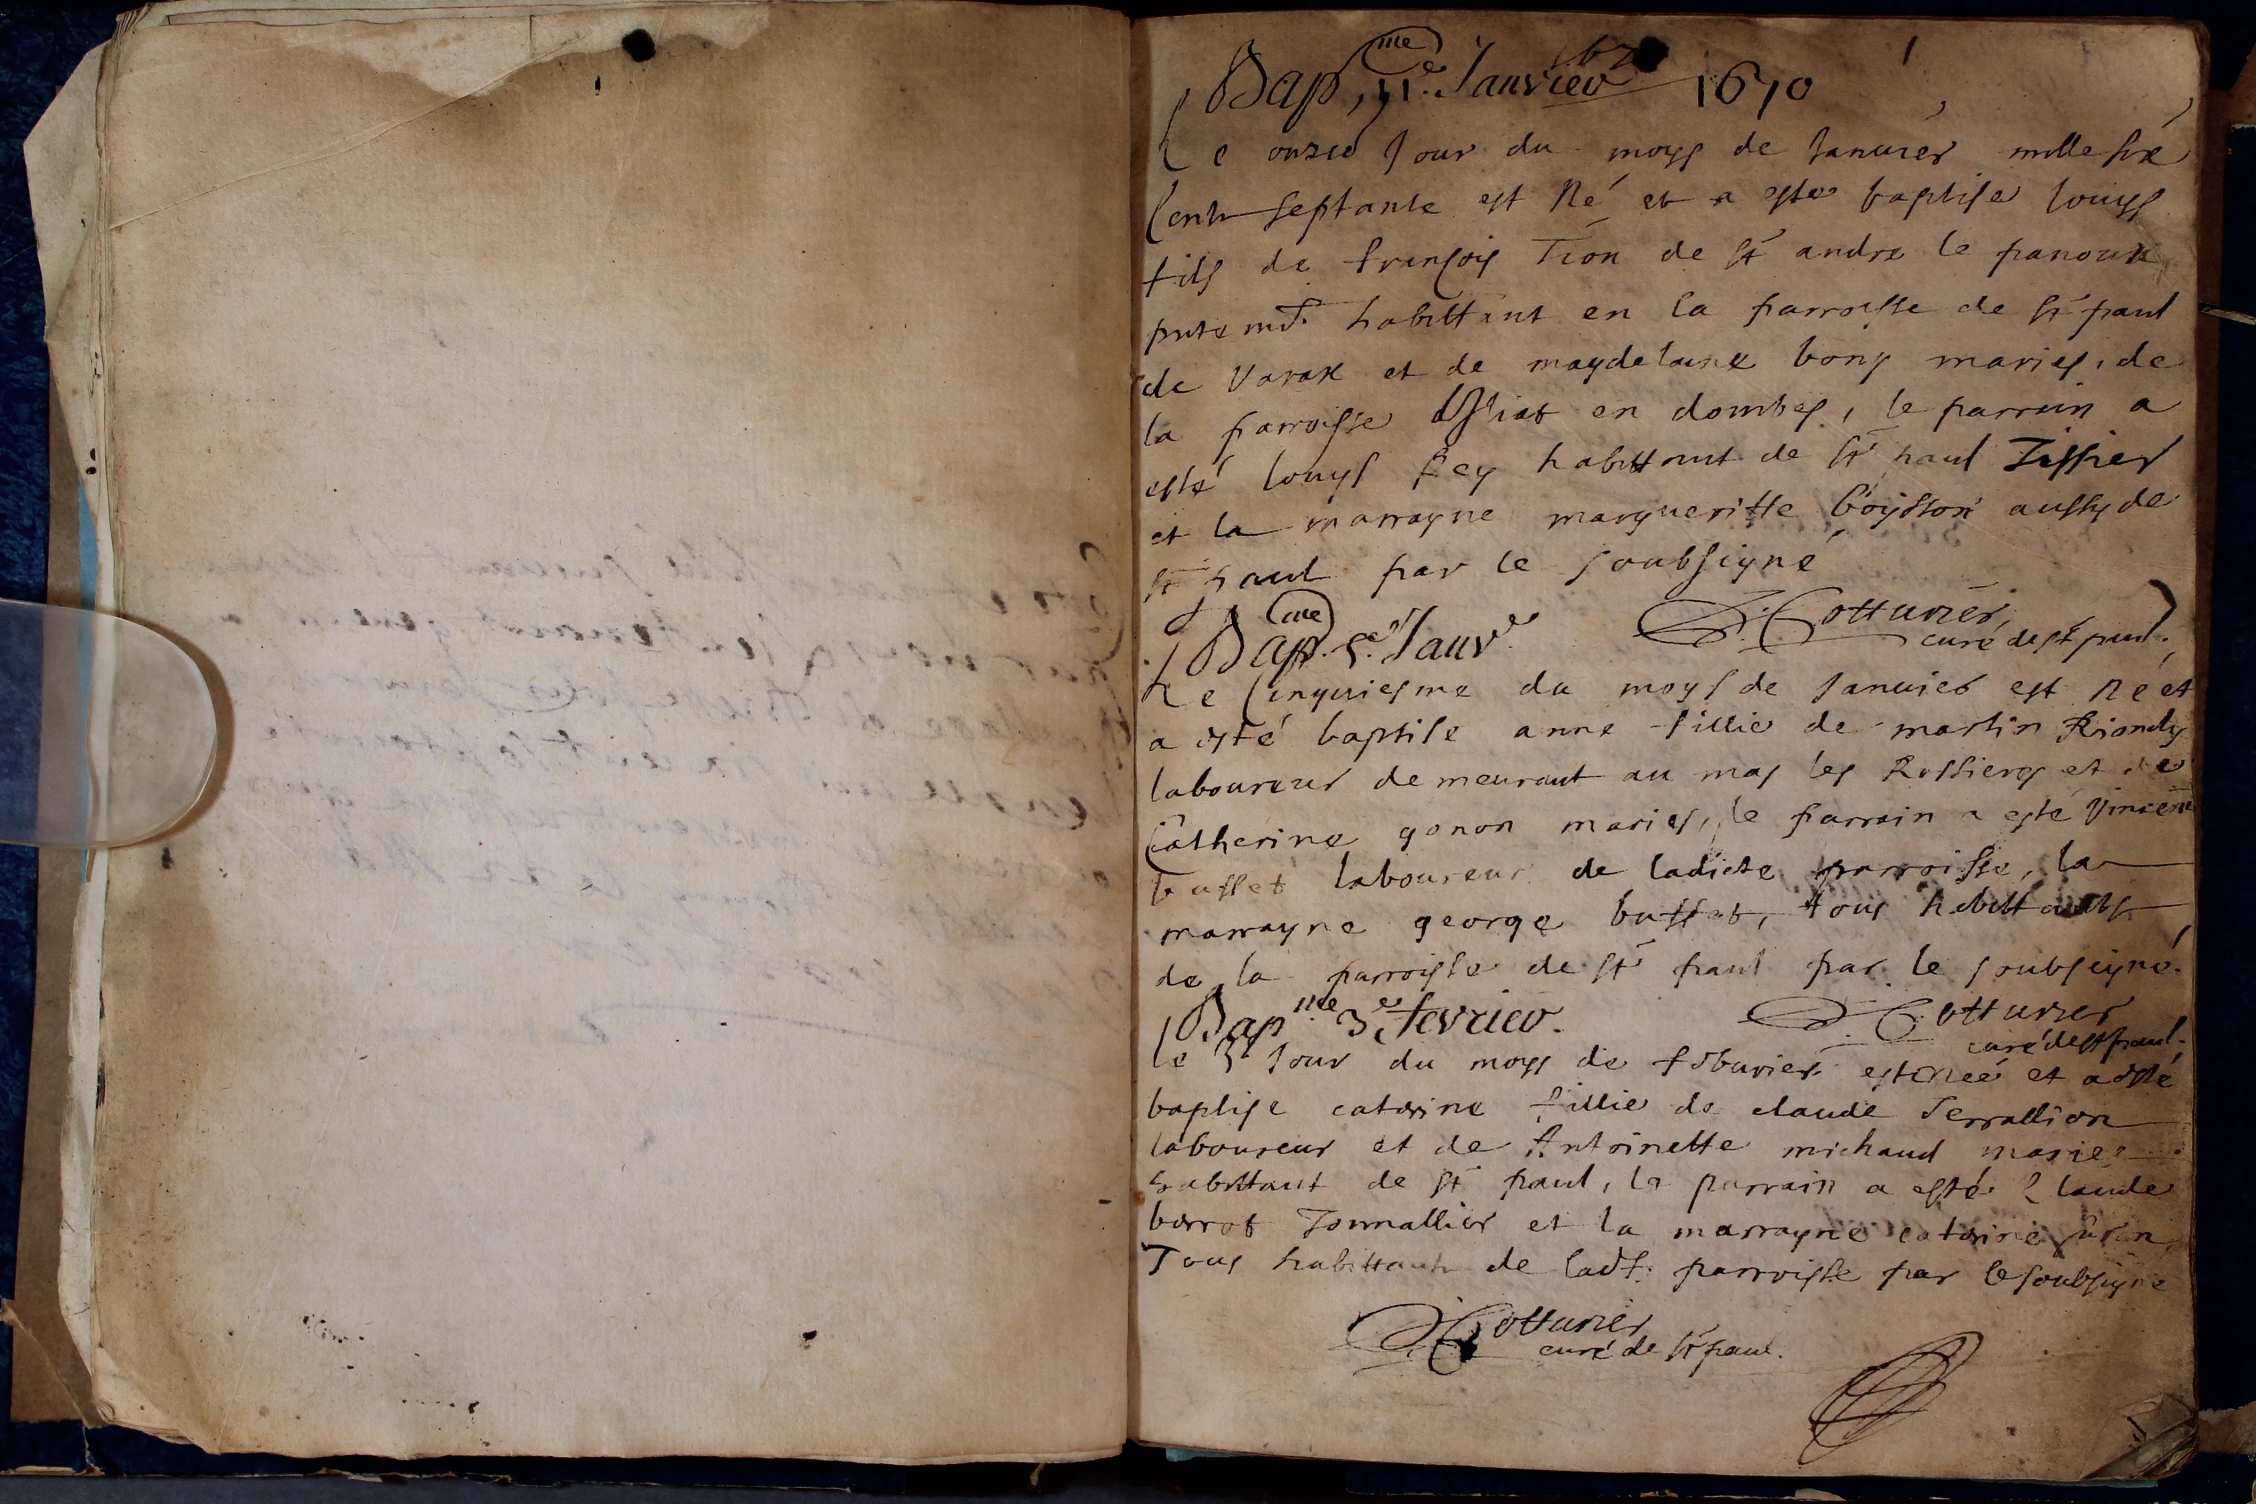 1
Bap^me, 11^e. Janvier 1670
Le onze Jour du moys de Januier mille six
Cent septante est Né et a este baptise louys
fils de françois Tion de st andre le panoux
habittant en la parroisse de st paul
de Varax et de maydelaine bony maries, de
la parroisse en dombes, le parrein a
esté louys fey habittant de st paul Tissier
et la marrayne margueritte boysson aussy de
st paul par le soubsigné
Cotturier
curé de st paul.
Bap^me. 5^e Janv^e.
Le Cinquiesme du moys de Januier est Né et
a esté baptise anne fillie de martin Riondy
laboureur demeurant au mas les Rossieres et de
Catherine gonon maries, le parrain a esté Vincent
buffet laboureur de ladicte parroisse, la
marrayne george buffet, tous habittants
de la parroisse de st paul par le soubsigné.
Bap^me 3^e fevrier.
Cotturier
curé de st paul.
le 3^e Jour du moys de feburier est née et a esté
baptise caterine fillie de claude Serrallion
laboureur et de Antoinette michaud maries
habittant de st paul, le parrain a esté Claude
berrot Tonnallier et la marrayne caterine
Tous habittants de ladt. parroisse par le soubsigné
Cotturier
curé de st paul.